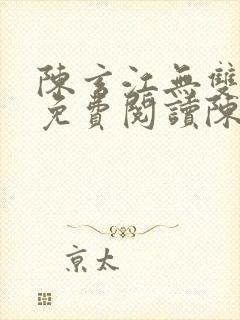 陳玄江無雙
免費閱讀陳
京太